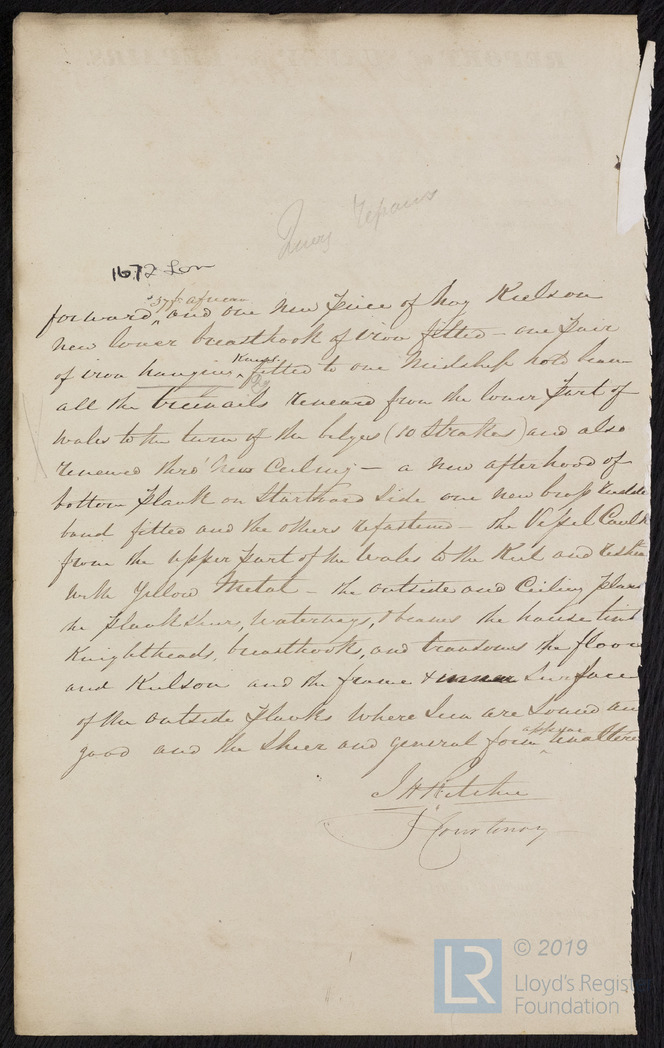 repairs
1672 Lon
forward, and one new Piece of hog Kielson
new lower breasthook of iron fitted – one Pair
of iron hanging Knees fitted to one Midship hold beam
all the treenails renewed from the lower Part of
Wales to the turn of the bilges (10 Strakes) and also
renewed thro' new Ceiling – a new afterhood of
bottom Plank on Starboard Side one new brass rudde
band fitted and the others refastened – the Vessel Caulk
from the upper Part of the Wales to the Keel and
With Yellow Metal – the outside and Ceiling Plan
the Plankshears, Waterways, & beams the hause tim
Knightheads, breasthooks, and transoms the floors
and Kielson and the frame & inner Surface
of the outside Planks where seen are Sound an
good and the Sheer and general form appear unaltere
J H Ritchie
J Courtenay
LR
© 2019
Lloyd's Registe
Foundation